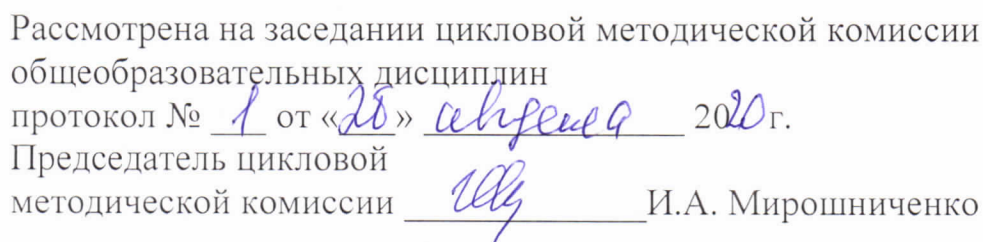 Рассмотрена на заседании цикловой методической комиссии
общеобразовательных дисциплин
протокол № 1 от «28» августа 2020 г.
Председатель цикловой
методической комиссии И.А. Мирошниченко